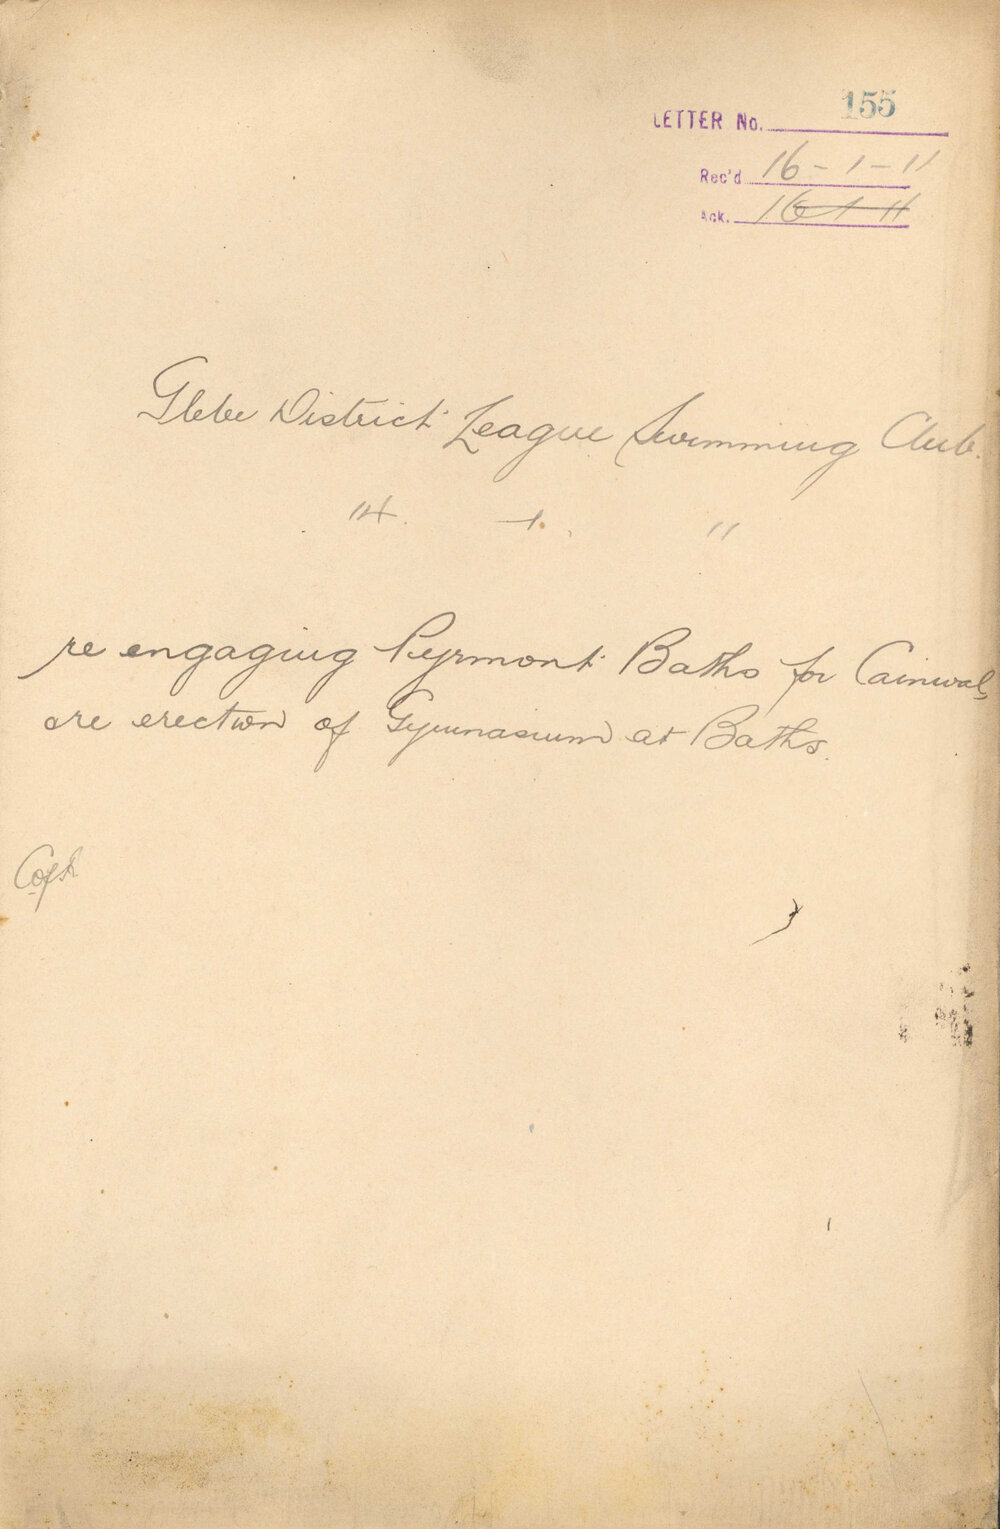 LETTER No. 155
Rec'd 16-1-11
Ack. 16-1-11
Glebe District League Swimming Club.
14. 1. 11
re engaging Pyrmont Baths for Carnival,
are erection of Gymnasium at Baths.